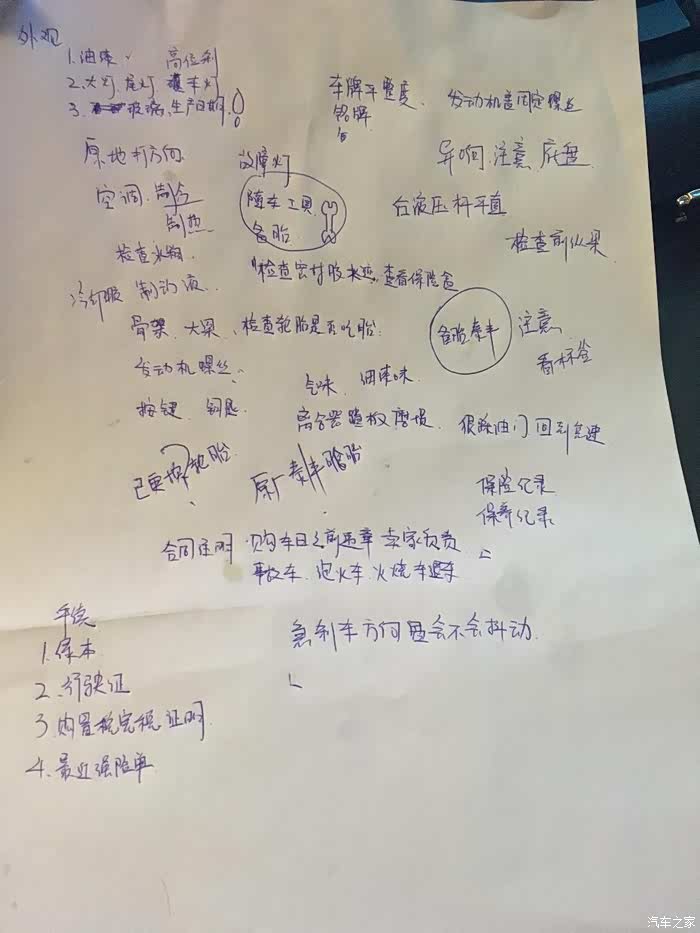 外观
1.油漆、 高位刹
2.大灯 尾灯 车灯
3. 玻璃、生产日期
车牌平整度、 发动机盖固定螺丝
铭牌
原地打方向 故障灯
异响 注意 底盘
空调、制冷
制热
随车工具
备胎
液压杆平直
检查水箱
检查前纵梁
冷却液 制动液
检查密封胶 查看保险盒
骨架、大梁、检查轮胎是否吃胎
备胎泰丰 注意
发动机螺丝
气味、油漆味
按键、钥匙
离合器踏板磨损、 狠踩油门回到怠速
已更换 轮胎
原厂泰丰 胎
保险记录
保养记录
合同注明 购车日之前违章 卖家负责
事故车、泡水车、火烧车退车
手续
1.绿本
2.行驶证
3.购置税完税证明
4.最近强险单
急刹车方向盘会不会抖动
汽车之家